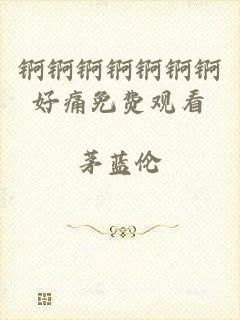 锕锕锕锕锕锕锕
好痛免费观看
茅蓝伦